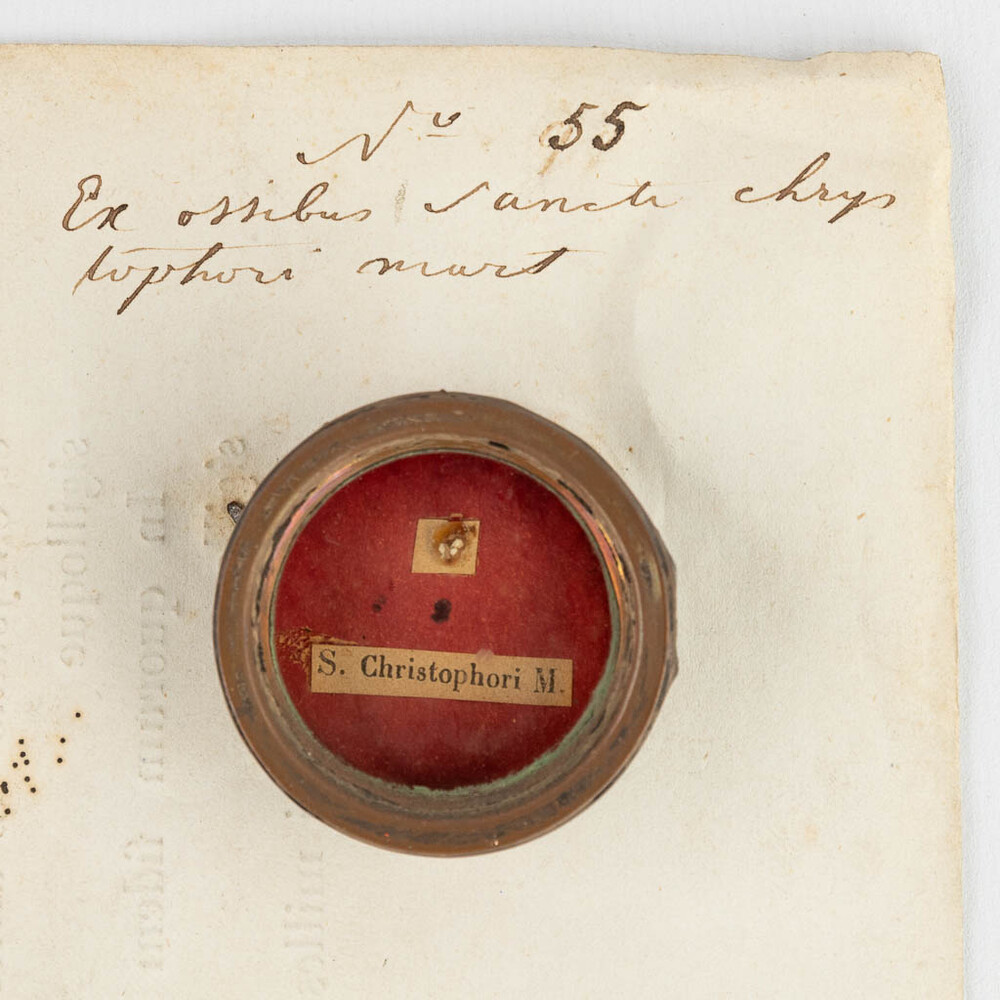 No 55
Ex ossibus Sancti chrys
tophori mart
S. Christophori M.